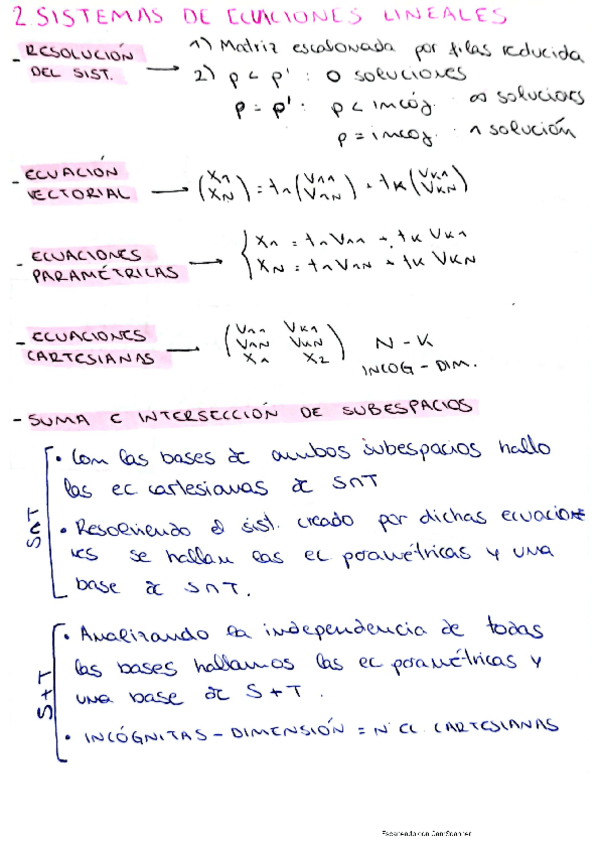 2 SISTEMAS DE ECUACIONES LINEALES
- RESOLUCIÓN DEL SIST. → 1) Matriz escalonada por filas reducida
2) p < p' : 0 soluciones
p = p' : p < incóg. ∞ soluciones
p = incóg. 1 solución
- ECUACIÓN VECTORIAL → (X1 XN) = t1 (V11 V1N) + tK (VK1 VKN)
- ECUACIONES PARAMÉTRICAS → { X1 = t1 V11 + tK VK1
XN = t1 V1N + tK VKN
- ECUACIONES CARTESIANAS — (V11 VK1
V1N VKN
X1 X2) N - K
INCOG - DIM.
- SUMA E INTERSECCIÓN DE SUBESPACIOS
S∩T
• Con las bases de ambos subespacios hallo
las ec cartesianas de S∩T
• Resolviendo el sist. creado por dichas ecuacio
nes se hallan las ec paramétricas y una
base de S∩T.
S+T
• Analizando la independencia de todas
las bases hallamos las ec paramétricas y
una base de S+T.
• INCÓGNITAS - DIMENSIÓN = Nº EC CARTESIANAS
Escaneado con CamScanner